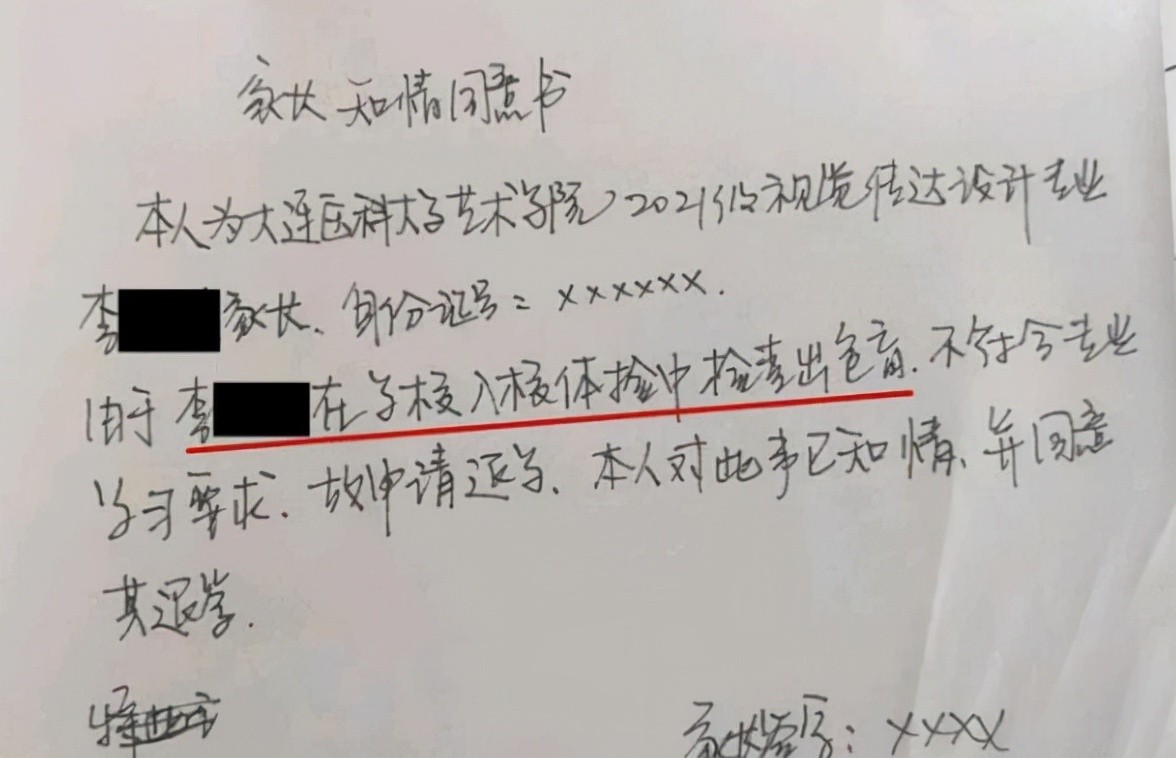 家长知情同意书
本人为大连医科大学艺术学院2021级视觉传达设计专业
李 家长、身份证号:xxxxxx.
由于李 在学校入校体检中检查出色盲.不符合专业
学习要求、故申请退学、本人对此事已知情、并同意
其退学.
家长签字:xxxx